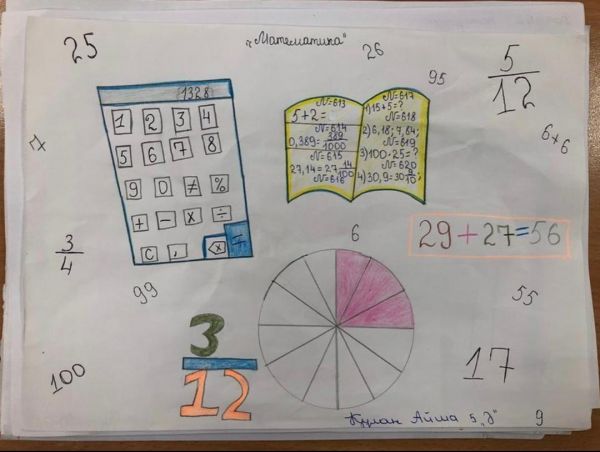 25
"Математика"
26
95
5/12
7
6 × 6
1328
1 2 3 4
5 6 7 8
9 0 ≠ %
+ − × ÷
C , ⌫ =
N=613
5+2=
N=614
0,389=389/1000
N=615
27,14=27 14/100
N=616
N=617
1) 15+5=?
N=618
2) 6,18; 7,84;
N=619
3) 100·25=?
N=620
4) 30,9=30 9/10
29+27=56
3/4
6
99
55
3/12
100
17
Айша 5 "Д"
9